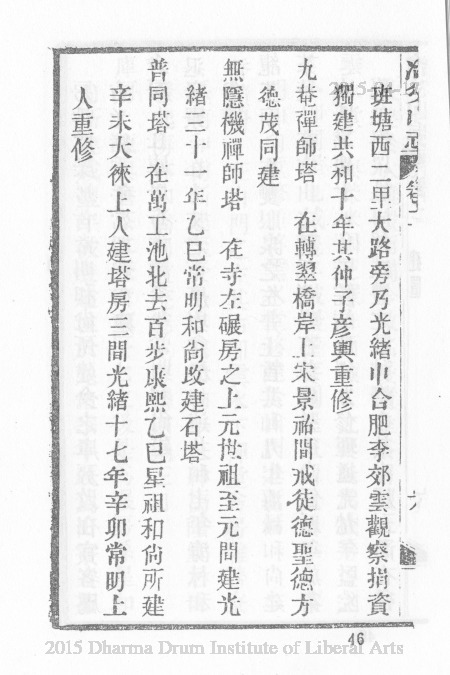 斑塘西一里大路旁乃光緒中合肥李郊雲觀察捐資
獨建共和十年其仲子彥輿重修
九菴禪師塔 在轉翠橋岸上宋景祐間戒徒德聖德方
德茂同建
無隱機禪師塔 在寺左碾房之上元世祖至元間建光
緒三十一年乙巳常明和尙改建石塔
普同塔 在萬工池北去百步康熙乙巳星祖和尙所建
辛未大徠上人建塔房三間光緒十七年辛卯常明上
人重修
46
2015 Dharma Drum Institute of Liberal Arts